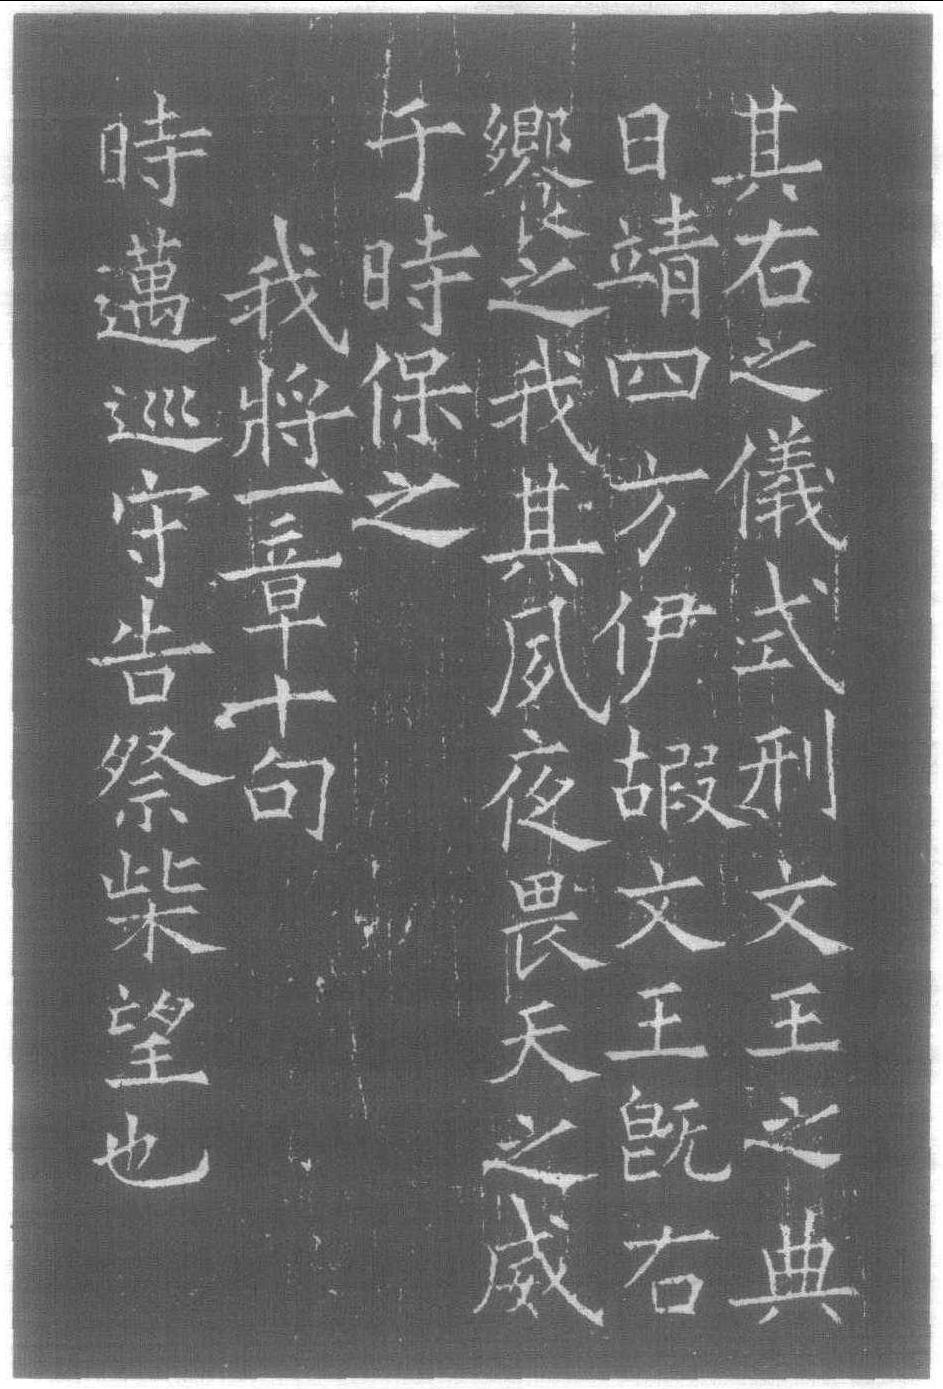 其右之儀式刑文王之典
日靖四方伊嘏文王旣右
饗之我其夙夜畏天之威
于時保之
我將一章十句
時邁巡守告祭柴望也